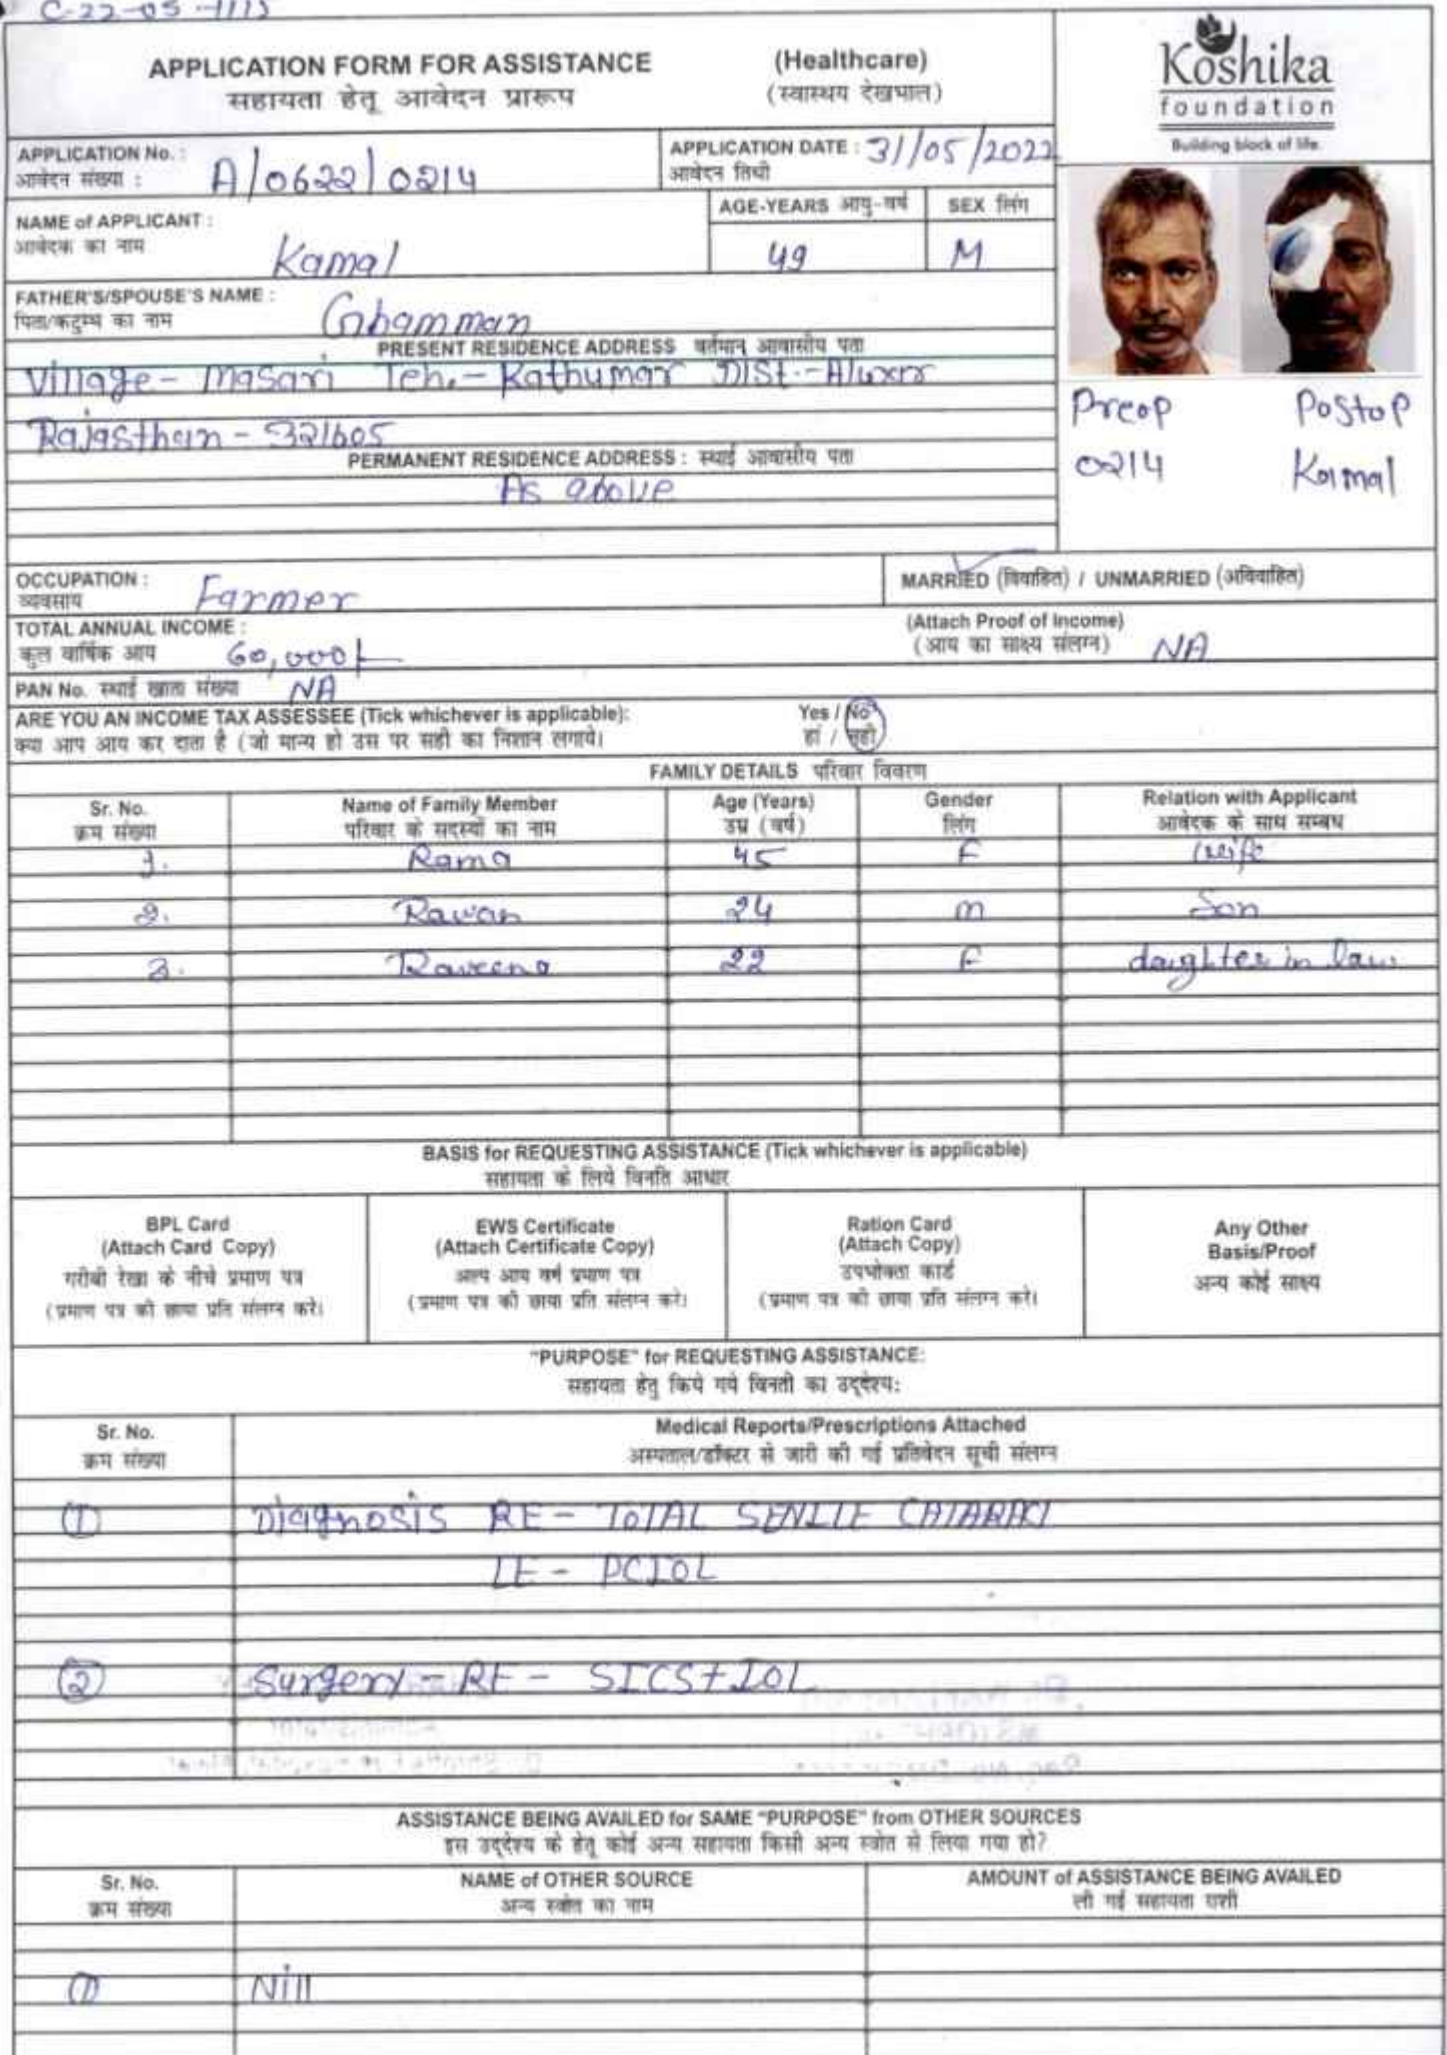 C-22-05-1115
APPLICATION FORM FOR ASSISTANCE (Healthcare)
सहायता हेतू आवेदन प्रारूप (स्वास्थय देखभाल)
Koshika
foundation
Building block of life.
APPLICATION No. : A/0622/0214
आवेदन संख्या :
APPLICATION DATE : 31/05/2022
आवेदन तिथी
NAME of APPLICANT : Kamal
आवेदक का नाम
AGE-YEARS आयु-वर्ष 49
SEX लिंग M
FATHER'S/SPOUSE'S NAME : Ghamman
पिता/कटुम्ब का नाम
PRESENT RESIDENCE ADDRESS वर्तमान आवासीय पता
Village- Masari Teh.- Kathumar DIST.- Alwar
Rajasthan - 321605
PERMANENT RESIDENCE ADDRESS : स्थाई आवासीय पता
As above
Preop Postop
0214 Kamal
OCCUPATION : Farmer
व्यवसाय
MARRIED (विवाहित) / UNMARRIED (अविवाहित)
TOTAL ANNUAL INCOME : 60,000/-
कुल वार्षिक आय
(Attach Proof of Income) NA
(आय का साक्ष्य संलग्न)
PAN No. स्थाई खाता संख्या NA
ARE YOU AN INCOME TAX ASSESSEE (Tick whichever is applicable): Yes / No
क्या आप आय कर दाता है (जो मान्य हो उस पर सही का निशान लगाये। हां / नही
FAMILY DETAILS परिवार विवरण
Sr. No. Name of Family Member Age (Years) Gender Relation with Applicant
क्रम संख्या परिवार के सदस्यों का नाम उम्र (वर्ष) लिंग आवेदक के साथ सम्बध
1. Rama 45 F wife
2. Rawan 24 m Son
3. Raveena 22 F daughter in law
BASIS for REQUESTING ASSISTANCE (Tick whichever is applicable)
सहायता के लिये विनति आधार
BPL Card
(Attach Card Copy)
गरीबी रेखा के नीचे प्रमाण पत्र
(प्रमाण पत्र की छाया प्रति संलग्न करे।
EWS Certificate
(Attach Certificate Copy)
अल्प आय वर्ग प्रमाण पत्र
(प्रमाण पत्र की छाया प्रति संलग्न करे।
Ration Card
(Attach Copy)
उपभोक्ता कार्ड
(प्रमाण पत्र की छाया प्रति संलग्न करे।
Any Other
Basis/Proof
अन्य कोई साक्ष्य
"PURPOSE" for REQUESTING ASSISTANCE:
सहायता हेतु किये गये विनती का उद्देश्य:
Sr. No. Medical Reports/Prescriptions Attached
क्रम संख्या अस्पताल/डॉक्टर से जारी की गई प्रतिवेदन सूची संलग्न
(1) Diagnosis RE - TOTAL SENILE CATARACT
LE - PCIOL
(2) Surgery - RE - SICS + IOL
ASSISTANCE BEING AVAILED for SAME "PURPOSE" from OTHER SOURCES
इस उद्देश्य के हेतू कोई अन्य सहायता किसी अन्य स्त्रोत से लिया गया हो?
Sr. No. NAME of OTHER SOURCE AMOUNT of ASSISTANCE BEING AVAILED
क्रम संख्या अन्य स्त्रोत का नाम ली गई सहायता राशी
(1) Nill